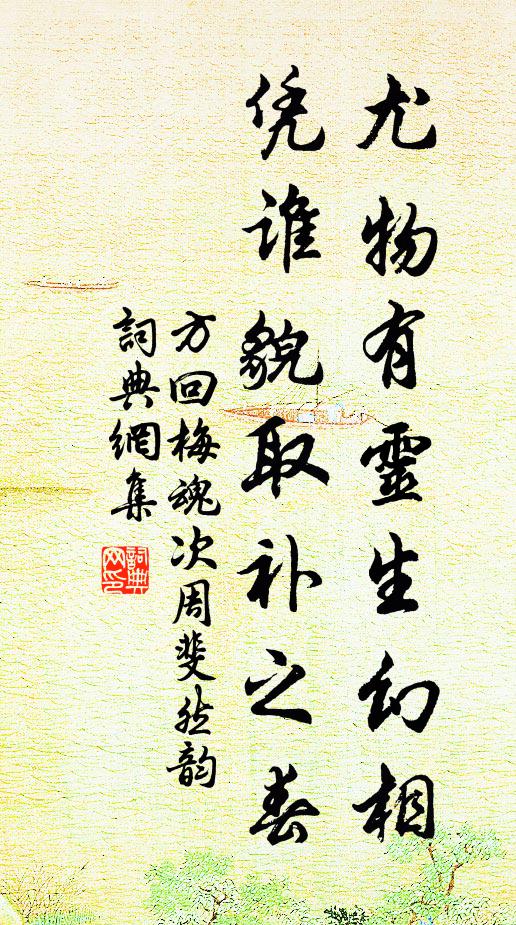 尤物有靈生幻相
凭谁貌取补之春
方回梅魂次周斐然韵
詞典網集
詞典網印